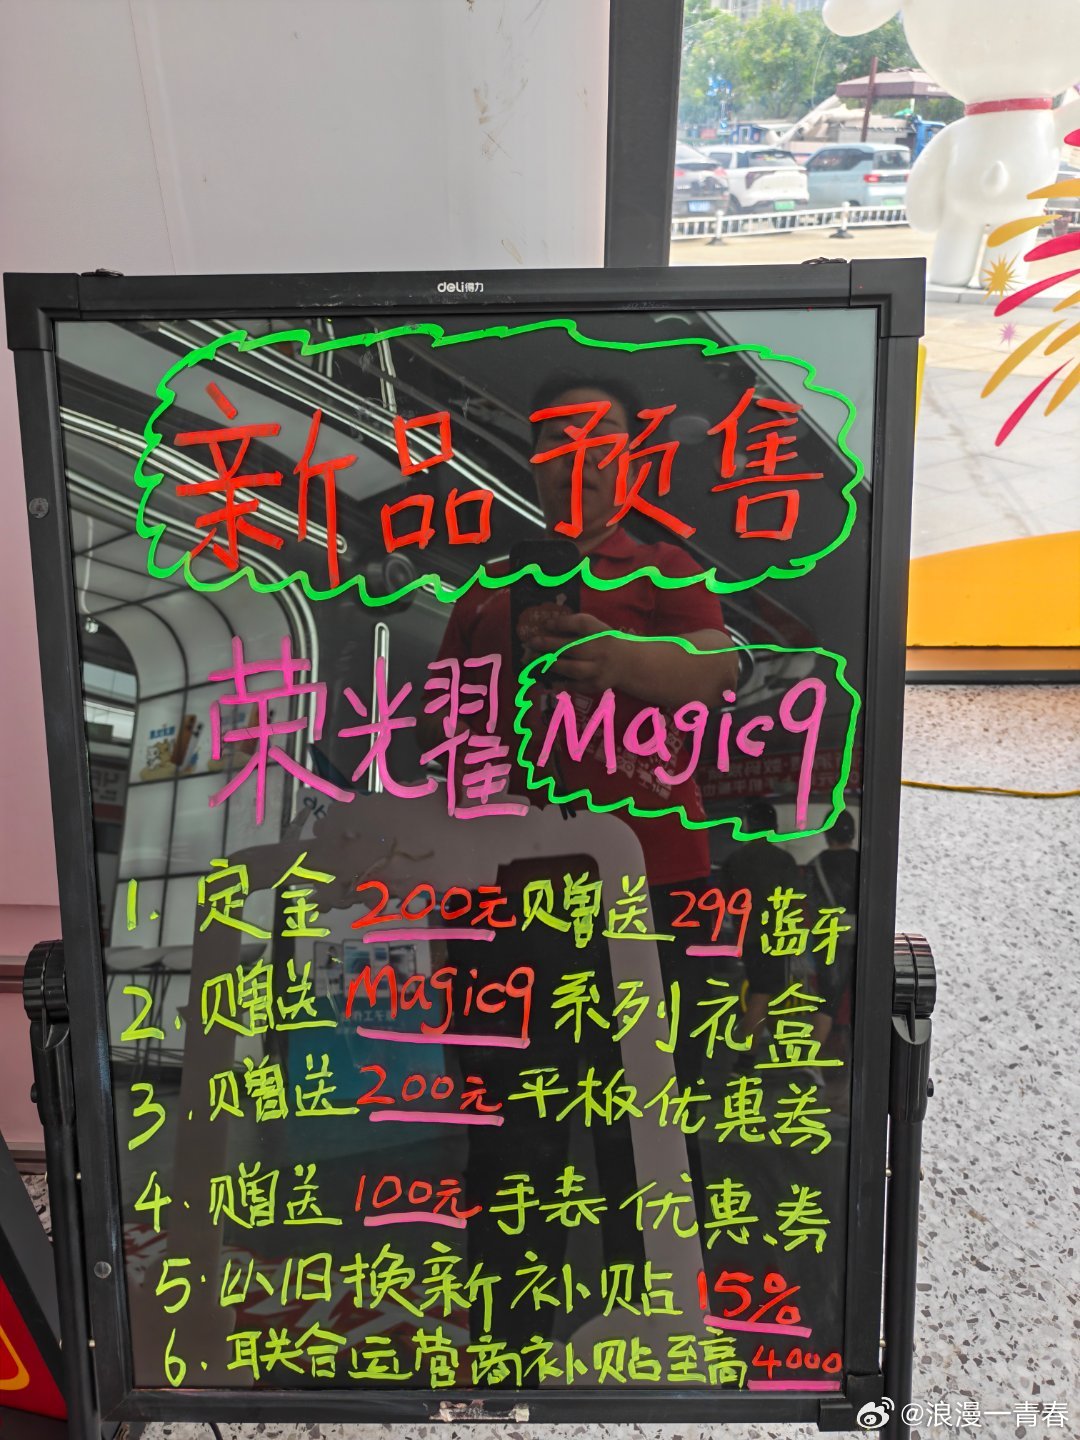 deli得力
新品预售
荣耀Magic9
1.定金200元赠送299蓝牙
2.赠送Magic9系列礼盒
3.赠送200元平板优惠券
4.赠送100元手表优惠券
5.以旧换新补贴15%
6.联合运营商补贴至高4000
@浪漫一青春